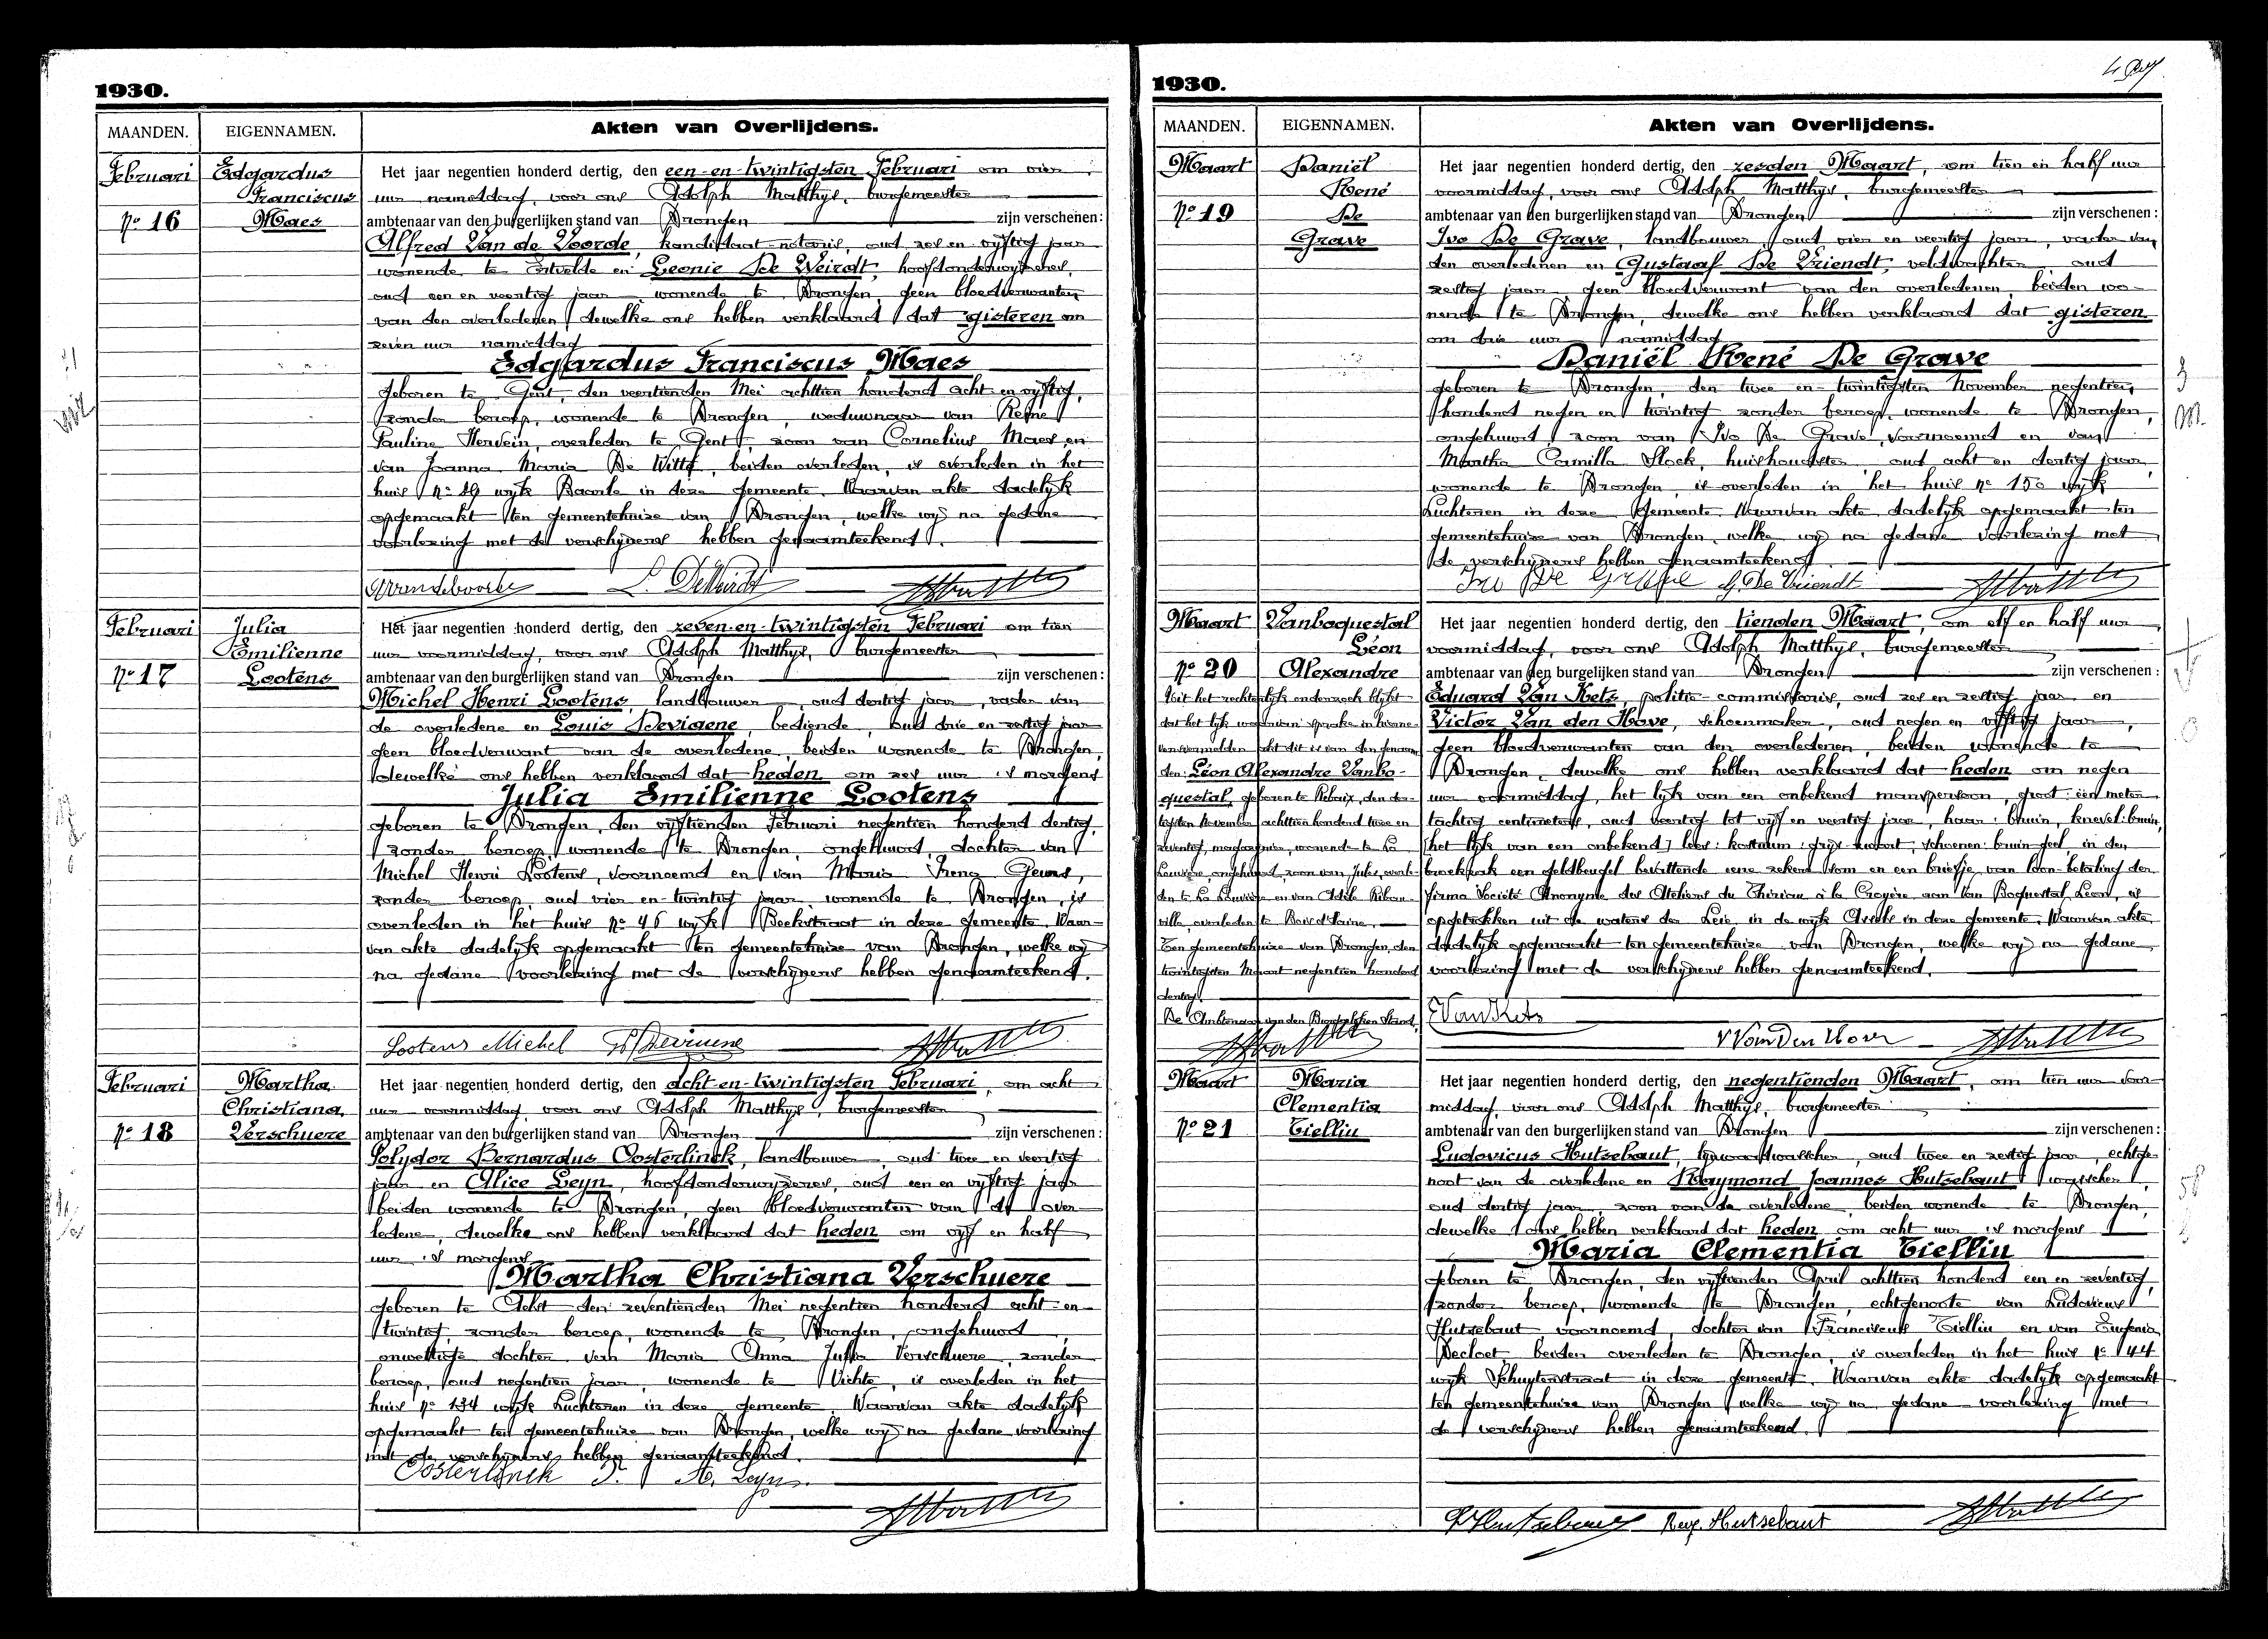 1930.
MAANDEN. EIGENNAMEN. Akten van Overlijdens.
Februari Edgardus Franciscus Maes
No 16
Het jaar negentien honderd dertig, den een-en-twintigsten Februari om vier
uur namiddag, voor ons Adolph Matthys, burgemeester
ambtenaar van den burgerlijken stand van Drongen zijn verschenen:
Alfred Van de Voorde, kandidaat-notaris, oud zes en vijftig jaar
wonende te Ertvelde en Leonie De Weirdt, hoofdonderwijzeres,
oud een en veertig jaar, wonende te Drongen, geen bloedverwanten
van den overledenen, dewelke ons hebben verklaard dat gisteren om
zeven uur namiddag
Edgardus Franciscus Maes
geboren te Gent, den veertienden Mei achttien honderd acht en vijftig,
zonder beroep, wonende te Drongen, weduwnaar van
Pauline Hervein, overleden te Gent, zoon van Cornelius Maes en
van Joanna Maria De Witte, beiden overleden, is overleden in het
huis No 19 wijk Baarle in deze gemeente. Waarvan akte dadelijk
opgemaakt ten gemeentehuize van Drongen, welke wij na gedane
voorlezing met de verschijners hebben genaamteekend.
AVandevoorde L. DeWeirdt
Februari Julia Emilienne Lootens
No 17
Het jaar negentien honderd dertig, den zeven-en-twintigsten Februari om tien
uur voormiddag, voor ons Adolph Matthys, burgemeester
ambtenaar van den burgerlijken stand van Drongen zijn verschenen:
Michel Henri Lootens, landbouwer, oud dertig jaar, vader van
de overledene en Louis Devigene, bediende, oud drie en zestig jaar
geen bloedverwant van de overledene, beiden wonende te Drongen,
dewelke ons hebben verklaard dat heden om zes uur 's morgens
Julia Emilienne Lootens
geboren te Drongen, den vijftienden Februari negentien honderd dertig,
zonder beroep, wonende te Drongen, ongehuwd, dochter van
Michel Henri Lootens, voornoemd en van Maria Irena Geuns,
zonder beroep, oud vier en-twintig jaar, wonende te Drongen, is
overleden in het huis No 46 wijk Beekstraat in deze gemeente. Waar-
van akte dadelijk opgemaakt ten gemeentehuize van Drongen, welke wij
na gedane voorlezing met de verschijners hebben genaamteekend.
Lootens Michel
Februari Martha Christiana Verschuere
No 18
Het jaar negentien honderd dertig, den acht-en-twintigsten Februari, om acht
uur voormiddag, voor ons Adolph Matthys, burgemeester
ambtenaar van den burgerlijken stand van Drongen zijn verschenen:
Polydor Bernardus Oosterlinck, landbouwer, oud twee en veertig
jaar en Alice Leyn, hoofdonderwijzeres, oud een en vijftig jaar
beiden wonende te Drongen, geen bloedverwanten van de over-
ledene, dewelke ons hebben verklaard dat heden om vijf en half
uur 's morgens
Martha Christiana Verschuere
geboren te Aelst den zeventienden Mei negentien honderd acht-en-
twintig, zonder beroep, wonende te Drongen, ongehuwd,
onwettige dochter van Maria Anna Julia Verschuere, zonder
beroep, oud negentien jaar, wonende te Vichte, is overleden in het
huis No 134 wijk Luchteren in deze gemeente. Waarvan akte dadelijk
opgemaakt ten gemeentehuize van Drongen, welke wij na gedane voorlezing
met de verschijners hebben genaamteekend.
Oosterlinck P. A. Leyn
1930.
MAANDEN. EIGENNAMEN. Akten van Overlijdens.
Maart Daniël René De Grave
No 19
Het jaar negentien honderd dertig, den zesden Maart, om tien en half uur
voormiddag, voor ons Adolph Matthys, burgemeester
ambtenaar van den burgerlijken stand van Drongen zijn verschenen:
Ivo De Grave, landbouwer, oud vier en veertig jaar, vader van
den overledenen en Gustaaf De Vriendt, veldwachter, oud
zestig jaar, geen bloedverwant van den overledenen, beiden wo-
nende te Drongen, dewelke ons hebben verklaard dat gisteren
om drie uur namiddag
Daniël René De Grave
geboren te Drongen, den twee en-twintigsten November negentien
honderd negen en twintig zonder beroep, wonende te Drongen,
ongehuwd, zoon van Ivo De Grave, voornoemd en van
Martha Camilla Stock, huishoudster, oud acht en dertig jaar,
wonende te Drongen, is overleden in het huis No 150 wijk
Luchteren in deze gemeente. Waarvan akte dadelijk opgemaakt ten
gemeentehuize van Drongen, welke wij na gedane voorlezing met
de verschijners hebben genaamteekend.
Ivo De Grave G. De Vriendt
Maart Vanboquestal Léon Alexandre
No 20
Uit het rechterlijk onderzoek blijkt
dat het lijk waarvan sprake in hierne-
vensvermelden akt dit is van den genaam-
den: Léon Alexandre Vanbo-
questal, geboren te Rebaix, den der-
tigsten November achttien honderd twee en
zeventig, magasinier, wonende te La
Louvière, ongehuwd, zoon van Jules, overle-
den te La Louvière en van Adèle Riban-
ville, overleden te Bois d'Haine.
Ten gemeentehuize van Drongen, den
twintigsten Maart negentien honderd
dertig.
De Ambtenaar van den Burgerlijken Stand,
Het jaar negentien honderd dertig, den tienden Maart, om elf en half uur
voormiddag, voor ons Adolph Matthys, burgemeester
ambtenaar van den burgerlijken stand van Drongen zijn verschenen:
Eduard Van Hets, politie-commissaris, oud zes en zestig jaar en
Victor Van den Hove, schoenmaker, oud negen en vijftig jaar,
geen bloedverwanten van den overledenen, beiden wonende te
Drongen, dewelke ons hebben verklaard dat heden om negen
uur voormiddag, het lijk van een onbekend manspersoon, groot: één meter
tachtig centimeters, oud veertig tot vijf en veertig jaar, haar: bruin, knevel: bruin,
(het lijk van een onbekend) lees: kostuum: grijs-zwart, schoenen: bruin-geel, in den
broekzak een geldbeugel bevattende eene zekere som en een briefje van loon-betaling der
firma Société Anonyme des Ateliers du Thiriau à la Croyère aan Van Boquestal Leon, is
opgetrokken uit de waters der Leie, in de wijk Assels in deze gemeente. Waarvan akte
dadelijk opgemaakt ten gemeentehuize van Drongen, welke wij na gedane
voorlezing met de verschijners hebben genaamteekend.
EVanHets
V VanDenHove
Maart Maria Clementia Tiellin
No 21
Het jaar negentien honderd dertig, den negentienden Maart, om tien uur voor-
middag, voor ons Adolph Matthys, burgemeester
ambtenaar van den burgerlijken stand van Drongen zijn verschenen:
Ludovicus Hutsebaut, lijnwaadwasscher, oud twee en zestig jaar, echtge-
noot van de overledene en Raymond Joannes Hutsebaut, wasscher,
oud dertig jaar, zoon van de overledene, beiden wonende te Drongen,
dewelke ons hebben verklaard dat heden om acht uur 's morgens
Maria Clementia Tiellin
geboren te Drongen, den vijftienden April achttien honderd een en zeventig,
zonder beroep, wonende te Drongen, echtgenoote van Ludovicus
Hutsebaut voornoemd, dochter van Franciscus Tiellin en van Eugenia
Decloet, beiden overleden te Drongen, is overleden in het huis No 144
wijk Schuytenstraat in deze gemeente. Waarvan akte dadelijk opgemaakt
ten gemeentehuize van Drongen welke wij na gedane voorlezing met
de verschijners hebben genaamteekend.
Ray. Hutsebaut